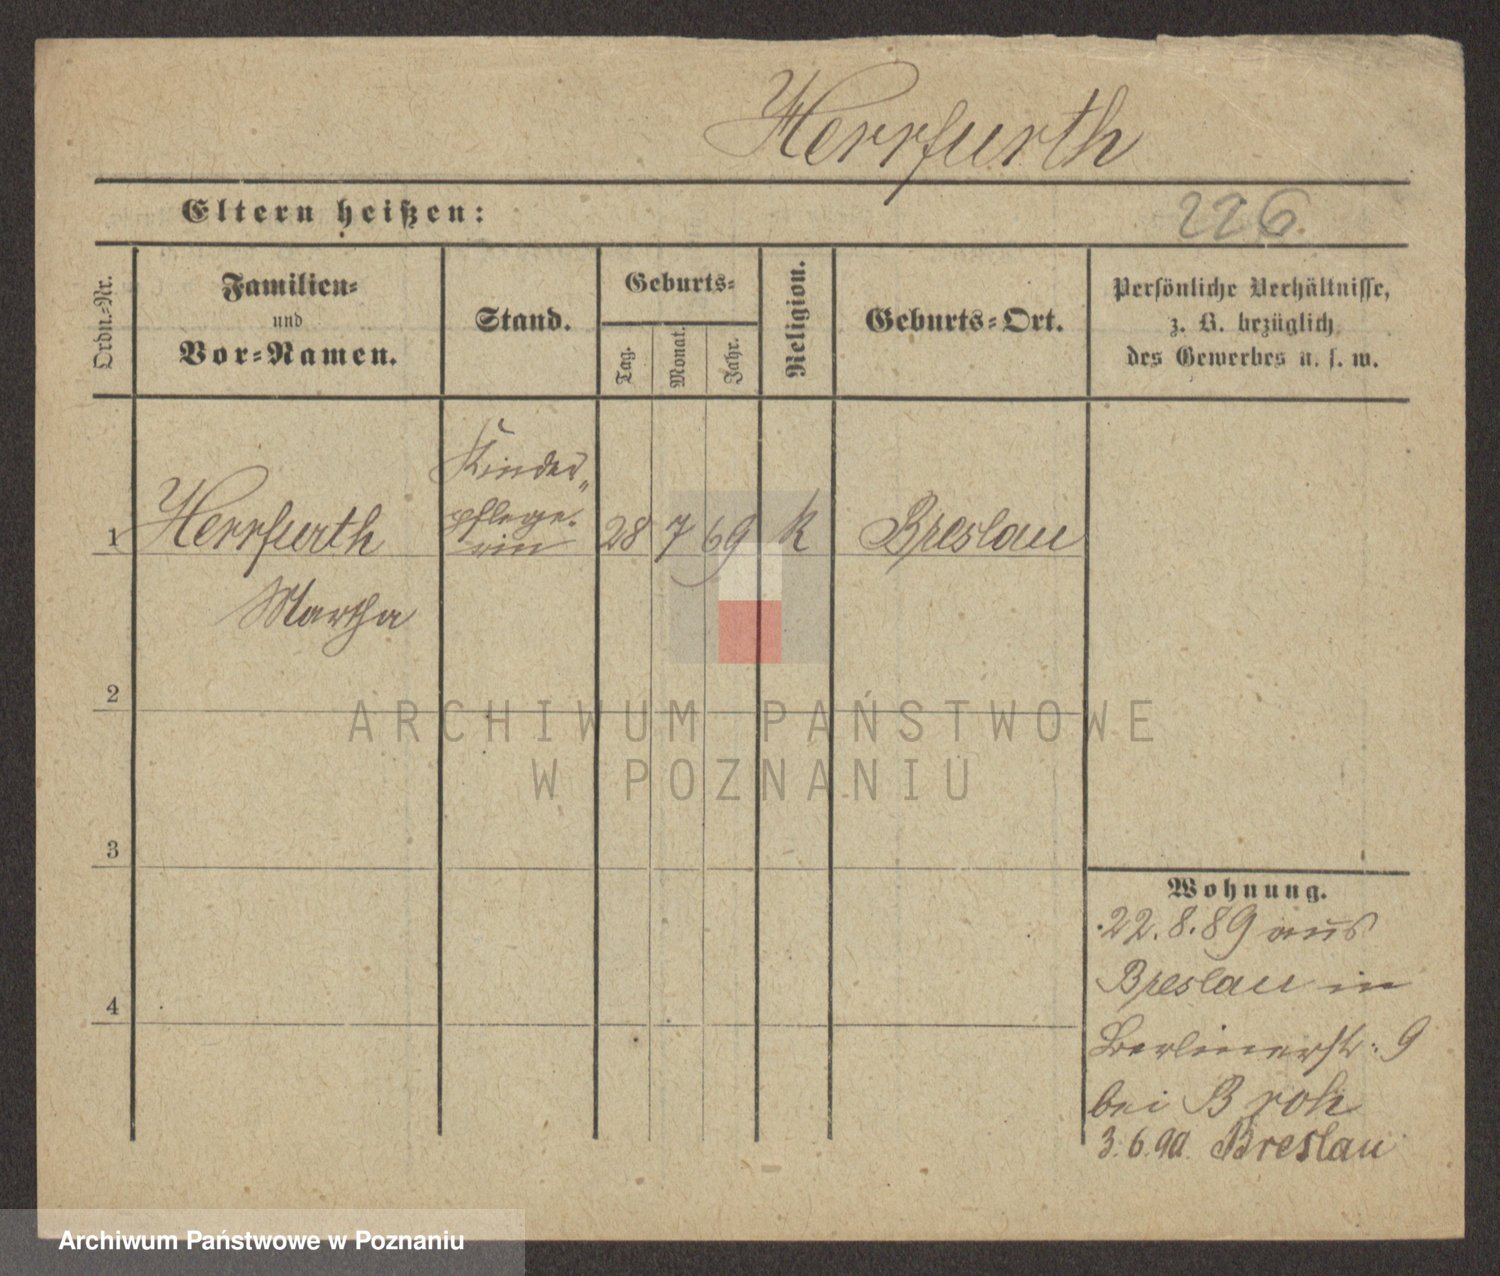 Herrfurth
Eltern heißen:
226.
Ordn.-Nr.
Familien-
und
Vor-Namen.
Stand.
Geburts-
Tag.
Monat.
Jahr.
Religion.
Geburts-Ort.
Persönliche Verhältnisse,
z. B. bezüglich
des Gewerbes u. s. w.
1
Herrfurth
Martha
Kinder„
pflege-
rin
28 7 69 k Breslau
2
ARCHIWUM PAŃSTWOWE
W POZNANIU
3
4
Wohnung.
22.8.89 aus
Breslau in
Berlinerstr: 9
bei Broh
3.6.90. Breslau
Archiwum Państwowe w Poznaniu